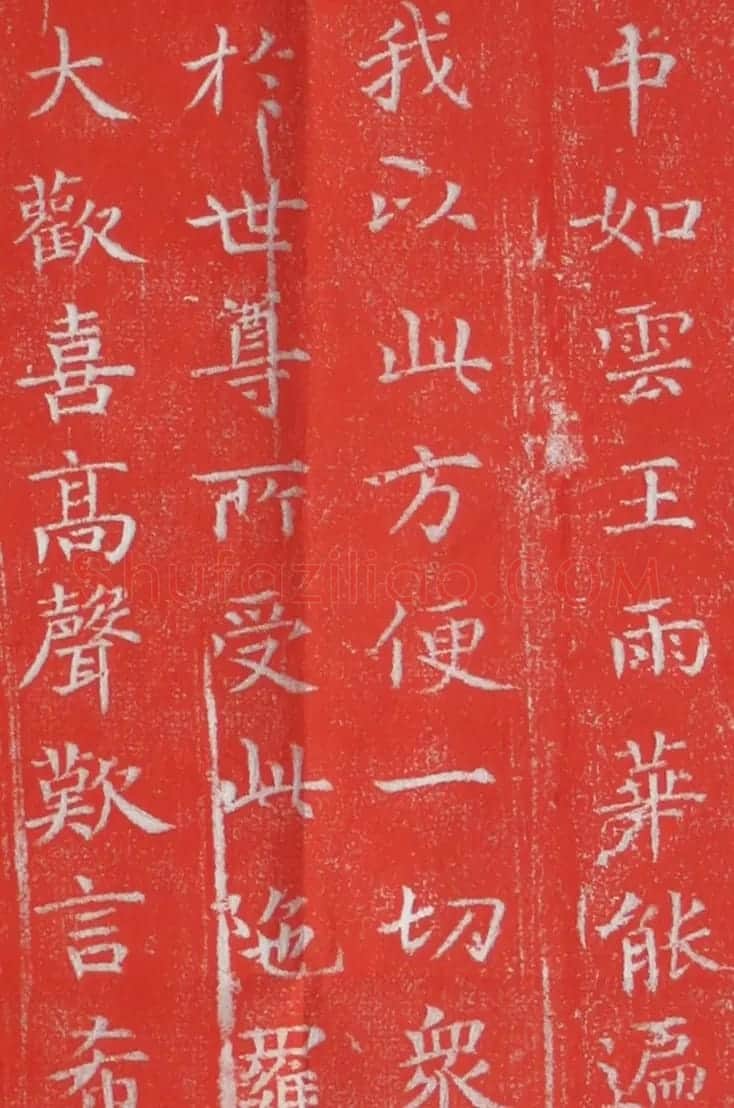 中如雲王雨華能遍
我以此方便一切衆
於世尊所受此陁羅
大歡喜高聲歎言希
Shufaziliao.COM